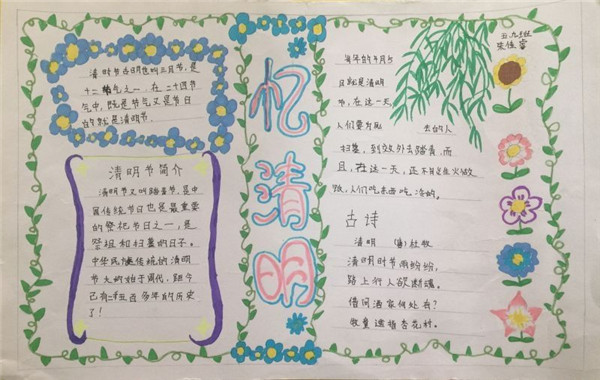 清明节又叫三月节,是
十二节气之一,在二十四节
气中,既是节气又是节日
的就是清明节.
清明节简介
清明节又叫踏青节,是中
国传统节日也是最重要
的祭祀节日之一,是
祭祖和扫墓的日子。
中华民族传统的清明
节大约始于周代,距今
已有二千五百多年的历史
了!
忆清明
每年的4月5
日就是清明
节,在这一天
人们要为死去的人
扫墓,到郊外去踏青,而
且,在这一天,正不能生火做
饭,人们吃东西吃冷的。
古诗
清明 (唐)杜牧
清明时节雨纷纷,
路上行人欲断魂。
借问酒家何处有?
牧童遥指杏花村。
五.九班